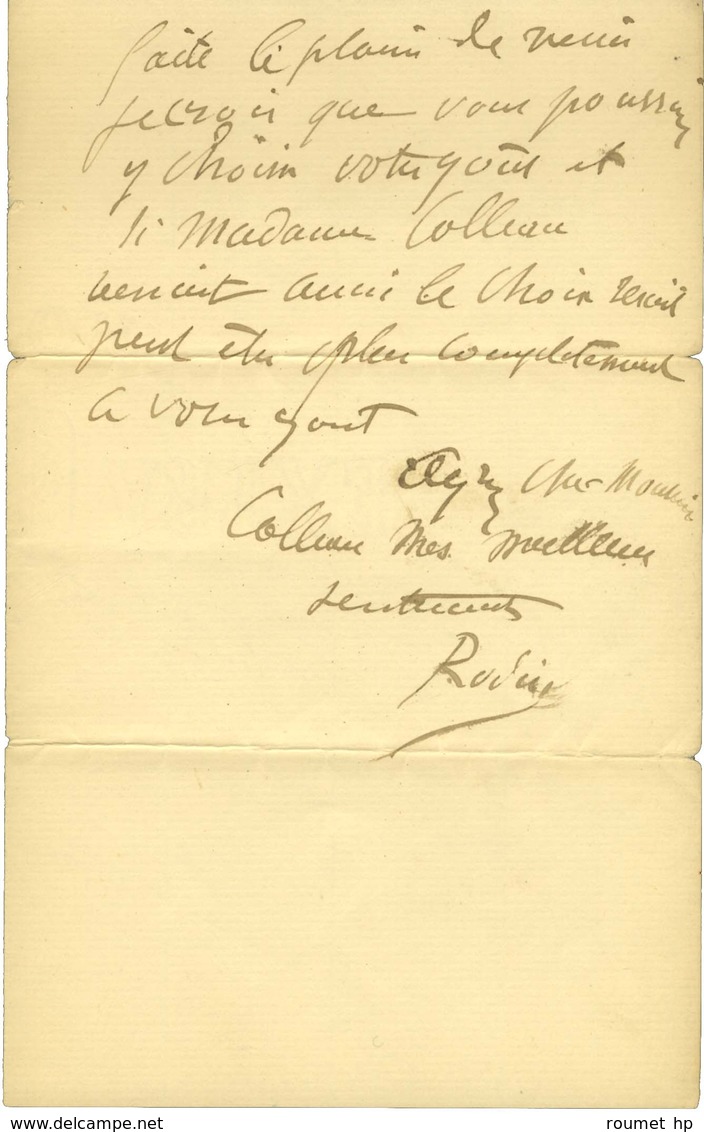 faite le plaisir de venir
je crois que vous pourrez
y choisir votre gout et
si Madame Colleau
venait aussi le choix serait
peut être plus completement
a votre gout
Agréez Cher Monsieur
Colleau mes meilleurs
sentiments
Rodin
delcampe.net
roumet hp